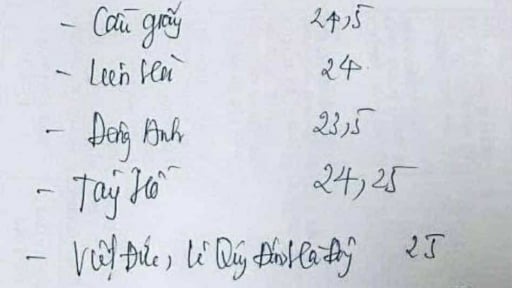 - Cầu giấy 24,5
- Liên Hà 24
- Đông Anh 23,5
- Tây Hồ 24,25
- Việt Đức, Lê Quý Đôn Hà Đông 25